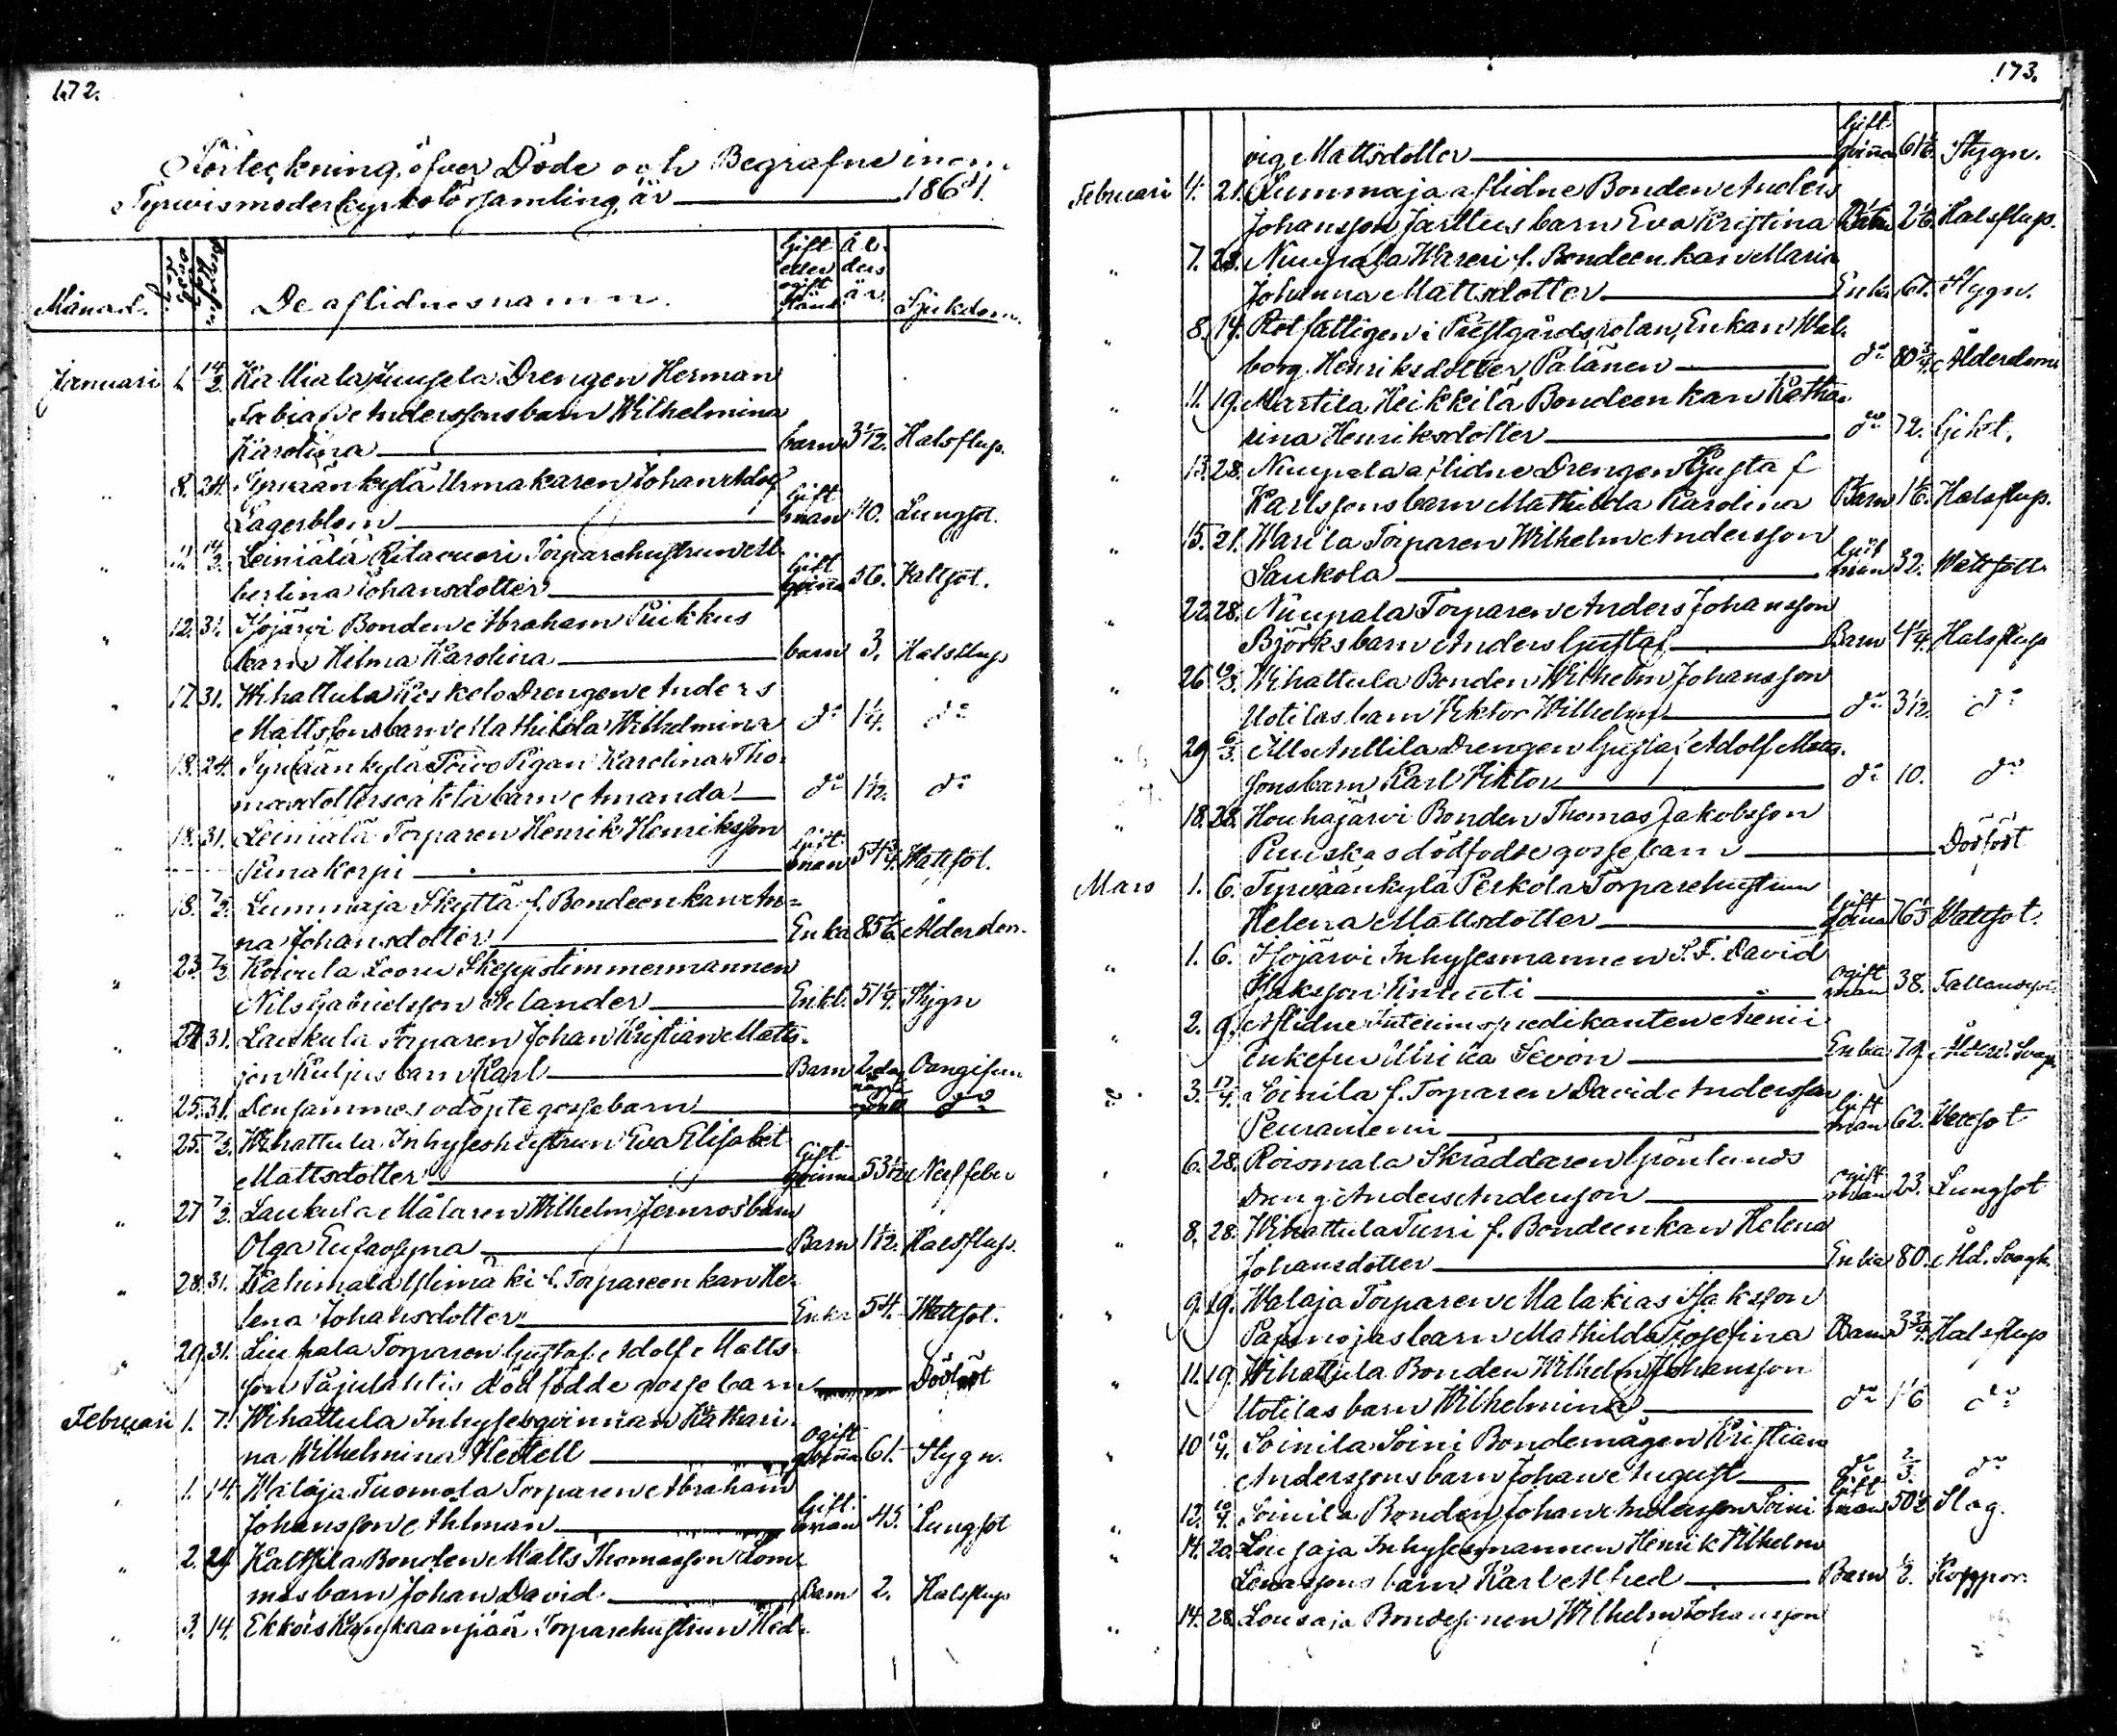 172.
Förteckning öfver Döde och Begrafne inom
Tyrvis moderkyrkoförsamling, år 1864.
Månad. De aflidnes namn. Gift eller ogift stånd. Ålders år. Sjukdom.
Januari 14/2. Kalliala Drengen Herman
Fabian Anderssons barn Wilhelmina
Karolina barn 3 1/2. Halsflup.
" 8. 24. Tyrväänkylä Urmakaren Johan Adolf
Lagerblom Gift man 40. Lungsot.
" 11 14/2. Leiniälä Ritavuori Torparehustrun Al-
bertina Johansdotter Gift qvinna 56. Hattsot.
" 12. 31. Illojärvi Bonden Abraham Pukkus
barn Hilma Karolina barn 3. Halsflup
" 17. 31. Wihattula Koskelo Drengen Anders
Mattssons barn Mathilda Wilhelmina do 1/4. do
" 18. 24. Tyrväänkylä Toivo Pigan Karolina Tho-
masdotters oäkta barn Amanda do 1 1/2. do
" 18. 31. Leiniälä Torparen Henrik Henriksson
Sunakorpi Gift man 54 3/4. Wattsot.
" 18. 7/2. Lummaja Skyttä f. Bondeenkan An-
na Johansdotter Enka 85 Ålderdom.
" 23. 7/2 Koivula Skeppstimmermannen
Nils Gabrielsson Selander Enkl. 51 1/4. Stygn
" 24 31. Laukula Torparen Johan Kristian Matts-
son Kuljus barn Karl Barn 2 dag Oangifven
" 25. 31. Densammes odöpte gossebarn några do
" 25. 7/2. Wihattula Inhyseshustrun Eva Elisabet
Mattsdotter Gift qvinna 53 1/2 Nerffeber
" 27 7/2. Laukula Målaren Wilhelm Jernros barn
Olga Eufrosyna Barn 1 1/2. Halsflup.
" 28. 31. Kahimala Ylimäki f. Torpareenkan He-
lena Johansdotter Enka 54. Wattsot.
" 29 31. Liuhala Torparen Gustaf Adolf Matts-
son Pajulahtis dödfödde gossebarn Dödföst
Februari 1. 7. Wihattula Inhysesqvinnan Kathari-
na Wilhelmina Hertell Ogift qvinna 61. Stygn.
" 1. 14. Walaja Tuomola Torparen Abraham
Johansson Ahlman Gift man 45. Lungsot
" 2. 29 Kaltsila Bonden Matts Thomasson Tom-
mos barn Johan David Barn 2. Halsflup
" 3. 14. Ekkois Torparehustrun Hed-
173.
vig Mattsdotter Gift qvinna 61 Stygn.
Februari 4. 21. Lummaja aflidne Bonden Anders
Johansson Jarttus barn Eva Kristina Barn 2 Halsflup.
" 7. 28. Nuupala Wareri f. Bondeenkan Maria
Johanna Mattsdotter Enka 67. Stygn.
" 8. 14. Rotfattigen i Prestgårdsrotan, Enkan Wal-
borg Henriksdotter Palanen do 80 3/4 Ålderdom
" 11. 19. Martila Heikkilä Bondeenkan Katha-
rina Henriksdotter do 72. Gikt.
" 13. 28. Nuupala aflidne Drengen Gustaf
Karlssons barn Mathilda Karolina Barn 1 Halsflup.
" 15. 21. Warila Torparen Wilhelm Andersson
Saukola Gift man 32. Wattsot
" 22. 28. Nuupala Torparen Anders Johansson
Björks barn Anders Gustaf Barn 4 1/4. Halsflup
" 26 Wihattula Bonden Wilhelm Johansson
Uotilas barn Viktor Wilhelm do 3 1/2. do
" 29 6/3. Illo Anttila Drengen Gustaf Adolf Matts-
sons barn Karl Viktor do 10. do
" 18. 28. Houhajärvi Bonden Thomas Jakobsson
Puuskas dödfödde gossebarn Dödföst
Mars 1. 6. Tyrväänkylä Perkola Torparehustrun
Helena Mattsdotter Gift qvinna 76 Wattsot.
" 1. 6. Illojärvi Inhysesmannen S. F. David
Isaksson Knuuti ogift man 38. Fallandesot.
" 2. 9. Aflidne Interimspredikanten Arenii
Enkefru Ulrika Sevon Enka 79. Ålder. Svagh
" 3. 17/4. Soinila f. Torparen David Andersson
Peuraniemi Gift man 62. Wattsot
" 6. 28. Roismala Skräddaren Grönlunds
Dreng Anders Andersson ogift man 23. Lungsot
" 8. 28. Wihattula Turri f. Bondeenkan Helena
Johansdotter Enka 80. Åld. Svagh.
" 9. 19. Walaja Torparen Malakias Isaksson
Pajunojas barn Mathilda Josefina Barn 3 3/4. Halsflup
" 11. 19. Wihattula Bonden Wilhelm Johansson
Uotilas barn Wilhelmina do 1/6 do
" 10 10/4. Soinila Soini Bondemågen Kristian
Anderssons barn Johan August do 2/3. do
" 12. 10/4. Soinila Bonden Johan Andersson Soini Gift man 50 1/2 Slag.
" 14. 20. Lousaja Inhysesmannen Henrik Wilhelm
Lenassons barn Karl Alfred Barn Koppor.
" 14. 28. Lousaja Bondesonen Wilhelm Johansson